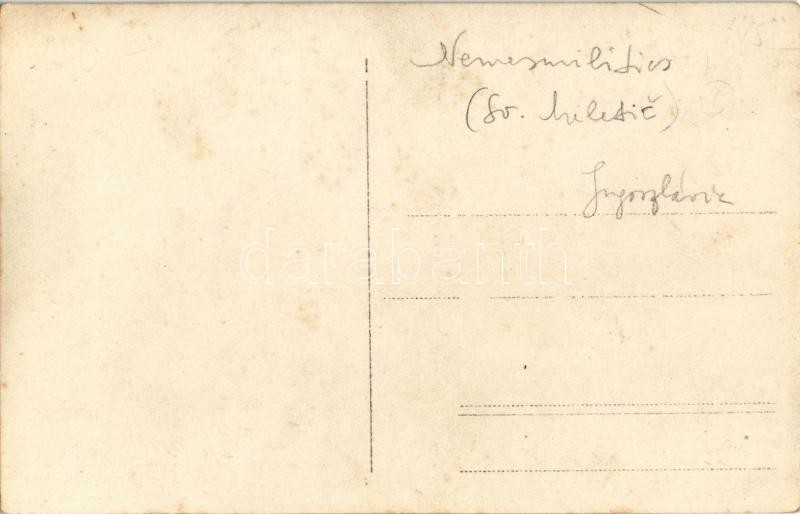 Nemesmilitics
(Sv. Miletič)
Jugoszlávia
darabanth